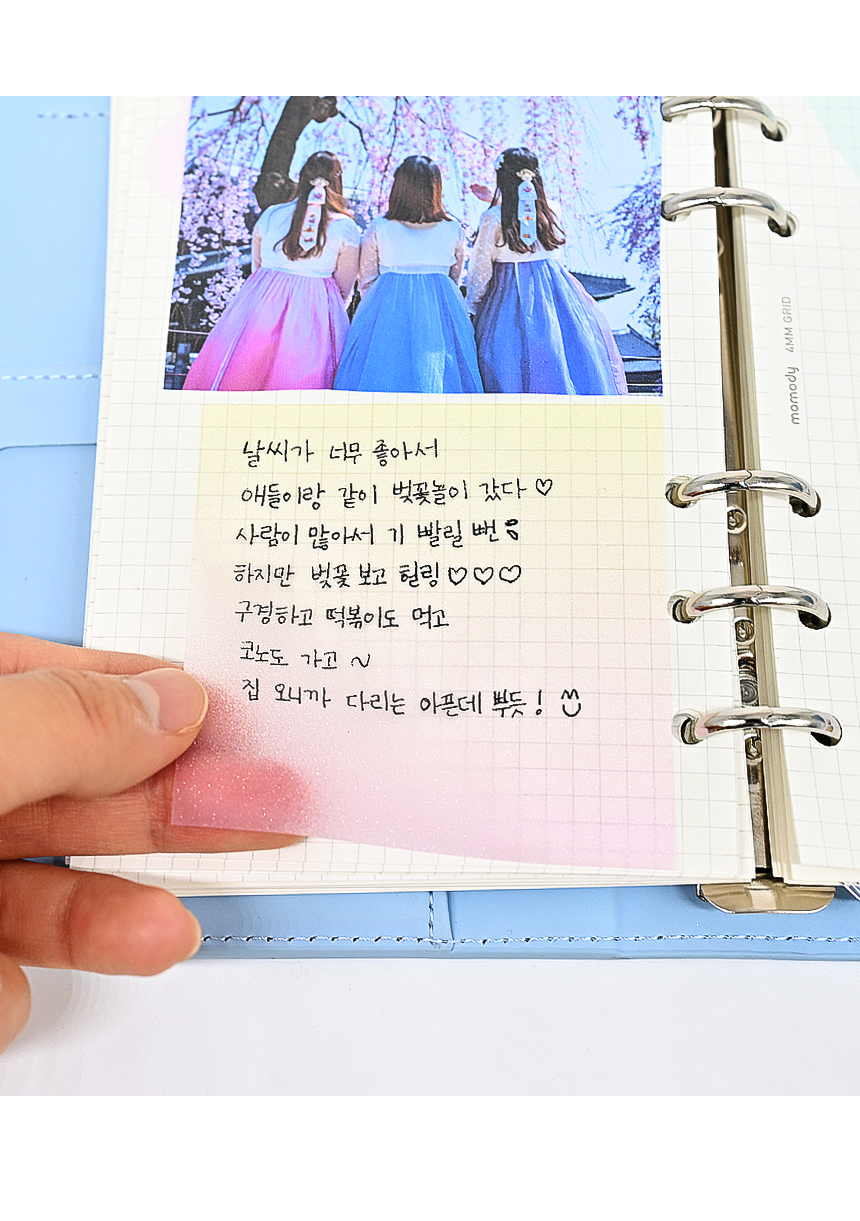 날씨가 너무 좋아서
애들이랑 같이 벚꽃놀이 갔다 ♡
사람이 많아서 기 빨릴 뻔
하지만 벚꽃 보고 힐링 ♡♡♡
구경하고 떡볶이도 먹고
코노도 가고 ~
집 오니까 다리는 아픈데 뿌듯!
momody 4MM GRID